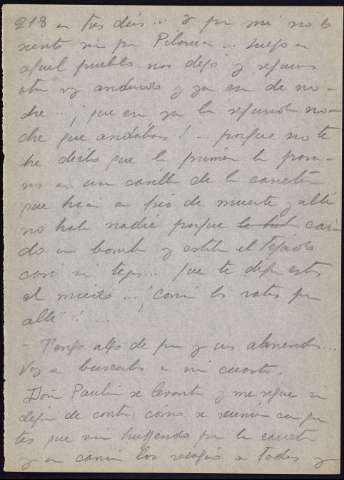 213 en tres días... y por mi no lo
siento ni por Pilarica... luego en
aquel pueblo nos dejó y seguimos
otra vez andando y ya era de no-
che... ¡que era ya la segunda no-
che que andábamos! - porque no te
he dicho que la primera la pasa-
mos en una casilla de la carretera
que hacía un frío de muerte y allí
no había nadie porque había caí-
do una bomba y estaba el tejado
casi sin tejas...
el miedo...! ¡corrían las ratas por
allí!...
- Tengo algo de pan y unas almendras...
Voy a buscarlas a mi cuarto.
Doña Paulina se levanta y me sigue sin
dejar de contar como se reunieron con gen-
tes que iban huyendo por la carretera
y a todos y